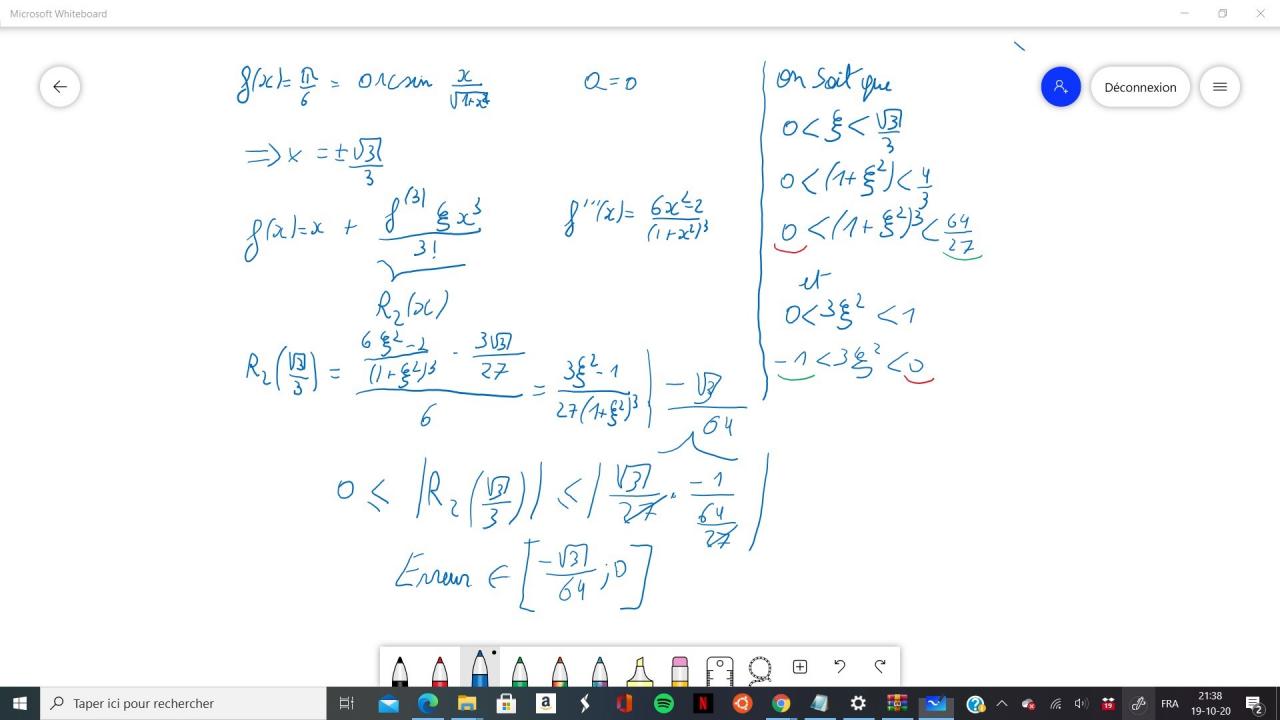 Microsoft Whiteboard
f(x) = π/6 = arcsin x/√(1+x²)    a = 0
⟹ x = ±√3/3
f(x) = x + f⁽³⁾ ξ x³/3!    f'''(x) = (6x²-2)/(1+x²)³
R₂(x)
R₂(√3/3) = ((6ξ²-2)/(1+ξ²)³ · 3√3/27)/6 = (3ξ²-1)/(27(1+ξ²)³) | -√3/64
0 ≤ |R₂(√3/3)| ≤ |√3/27 · -1/(64/27)|
Erreur ∈ [-√3/64 ; 0]
on sait que
0 < ξ < √3/3
0 < (1+ξ²) < 4/3
0 < (1+ξ²)³ < 64/27
et
0 < 3ξ² < 1
-1 < 3ξ² < 0
Déconnexion
Taper ici pour rechercher
a
N
19
FRA
21:38
19-10-20
2